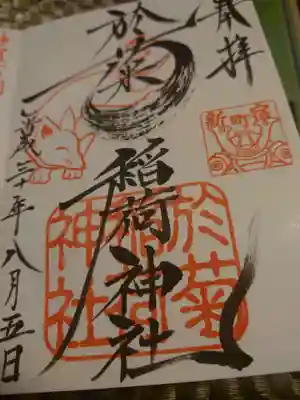 奉拝
於菊
稲荷神社
新町宿
於菊
稲荷
神社
平成三十年八月五日